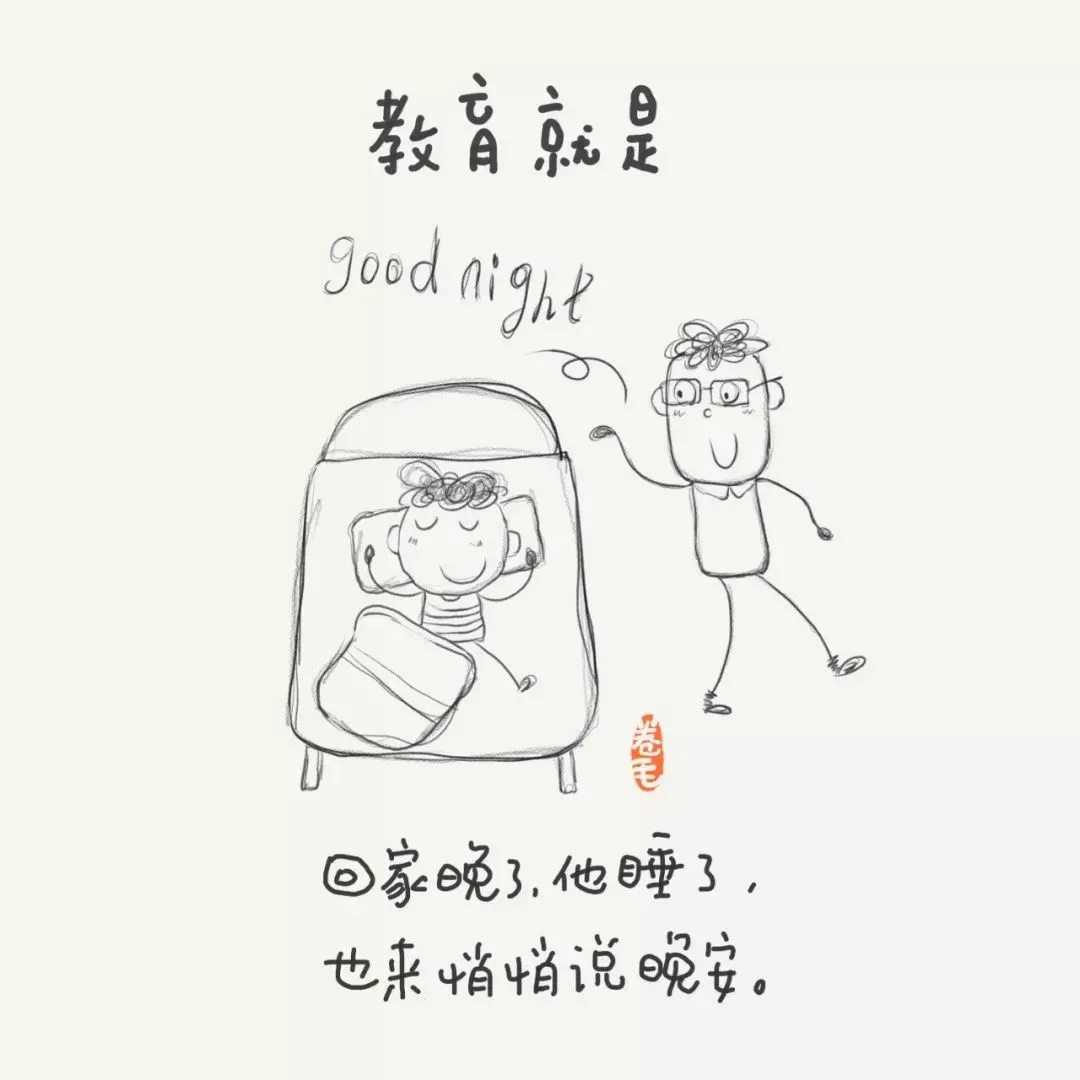 教育就是
good night
卷毛
回家晚了,他睡了,
也来悄悄说晚安。